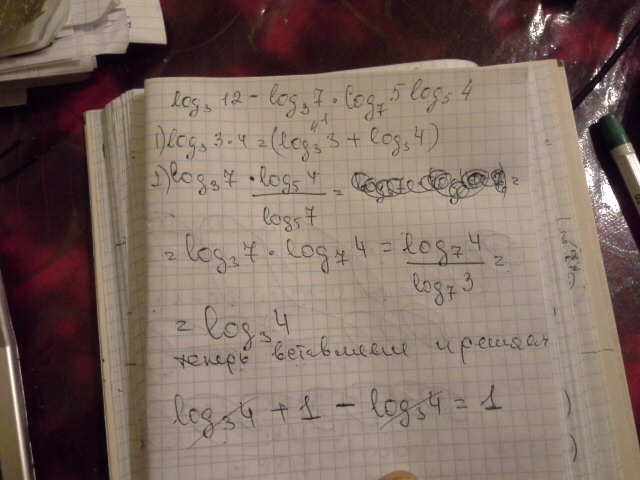 log₃ 12 - log₃ 7 · log₇ 5 log₅ 4
1) log₃ 3·4 = (log₃ 3 + log₃ 4)
"1
2) log₃ 7 · log₅ 4 / log₅ 7 = =
= log₃ 7 · log₇ 4 = log₇ 4 / log₇ 3 =
= log₃ 4
теперь вставляем и решаем
log₃ 4 + 1 - log₃ 4 = 1